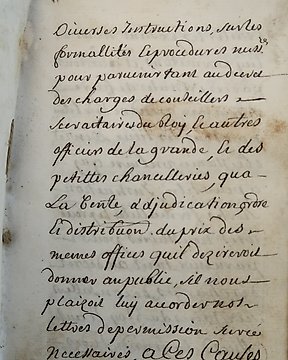 Diverses Instructions, sur les
formallités & procedures ness.res
pour parvenir tant au decret
des charges de conseillers
secretaires du Roy, & autres
officiers de la grande, & des
petittes chancelleries, qua
La Vente, adjudication, ordre
& distribuon du prix des
memes offices quil dezireroit
donner au public, sil nous
plaizoit luy accorder nos
lettres de permission sur ce
necessaires, a Ces Causes